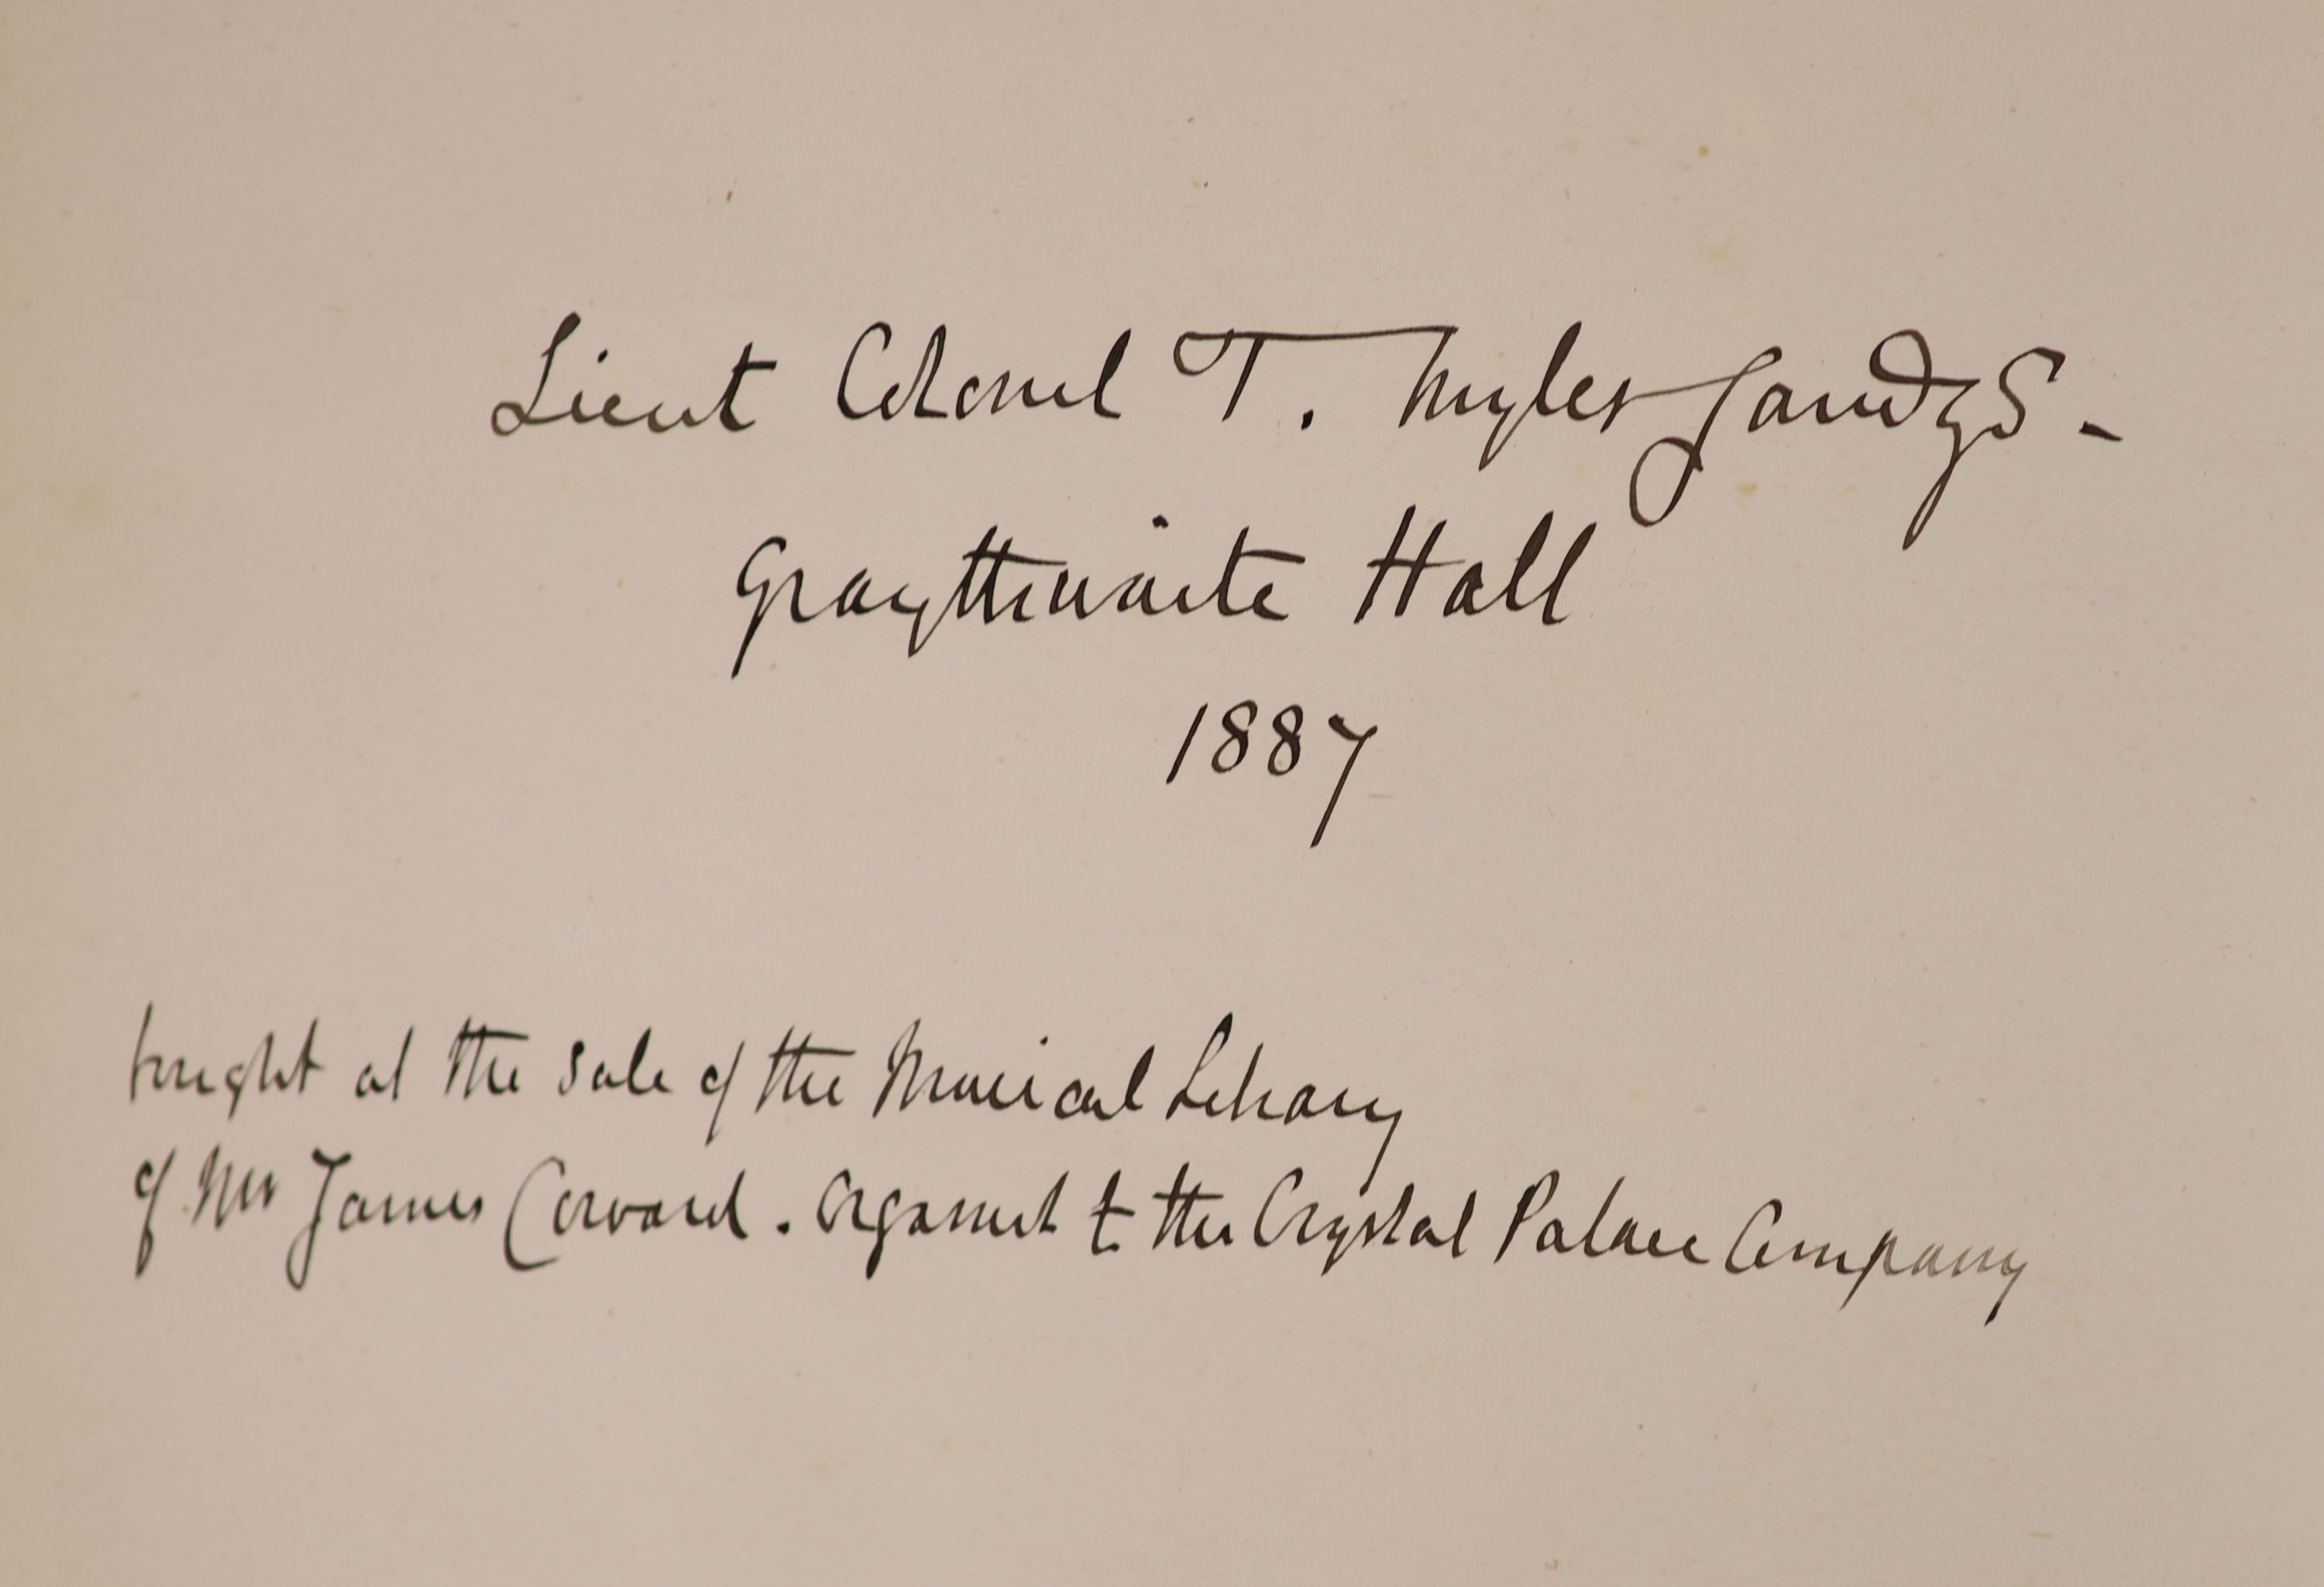 Lieut Colonel T. Myles Sandys -
Graythwaite Hall
1887
bought at the sale of the Musical Library
of Mr James Coward. Organist to the Crystal Palace Company